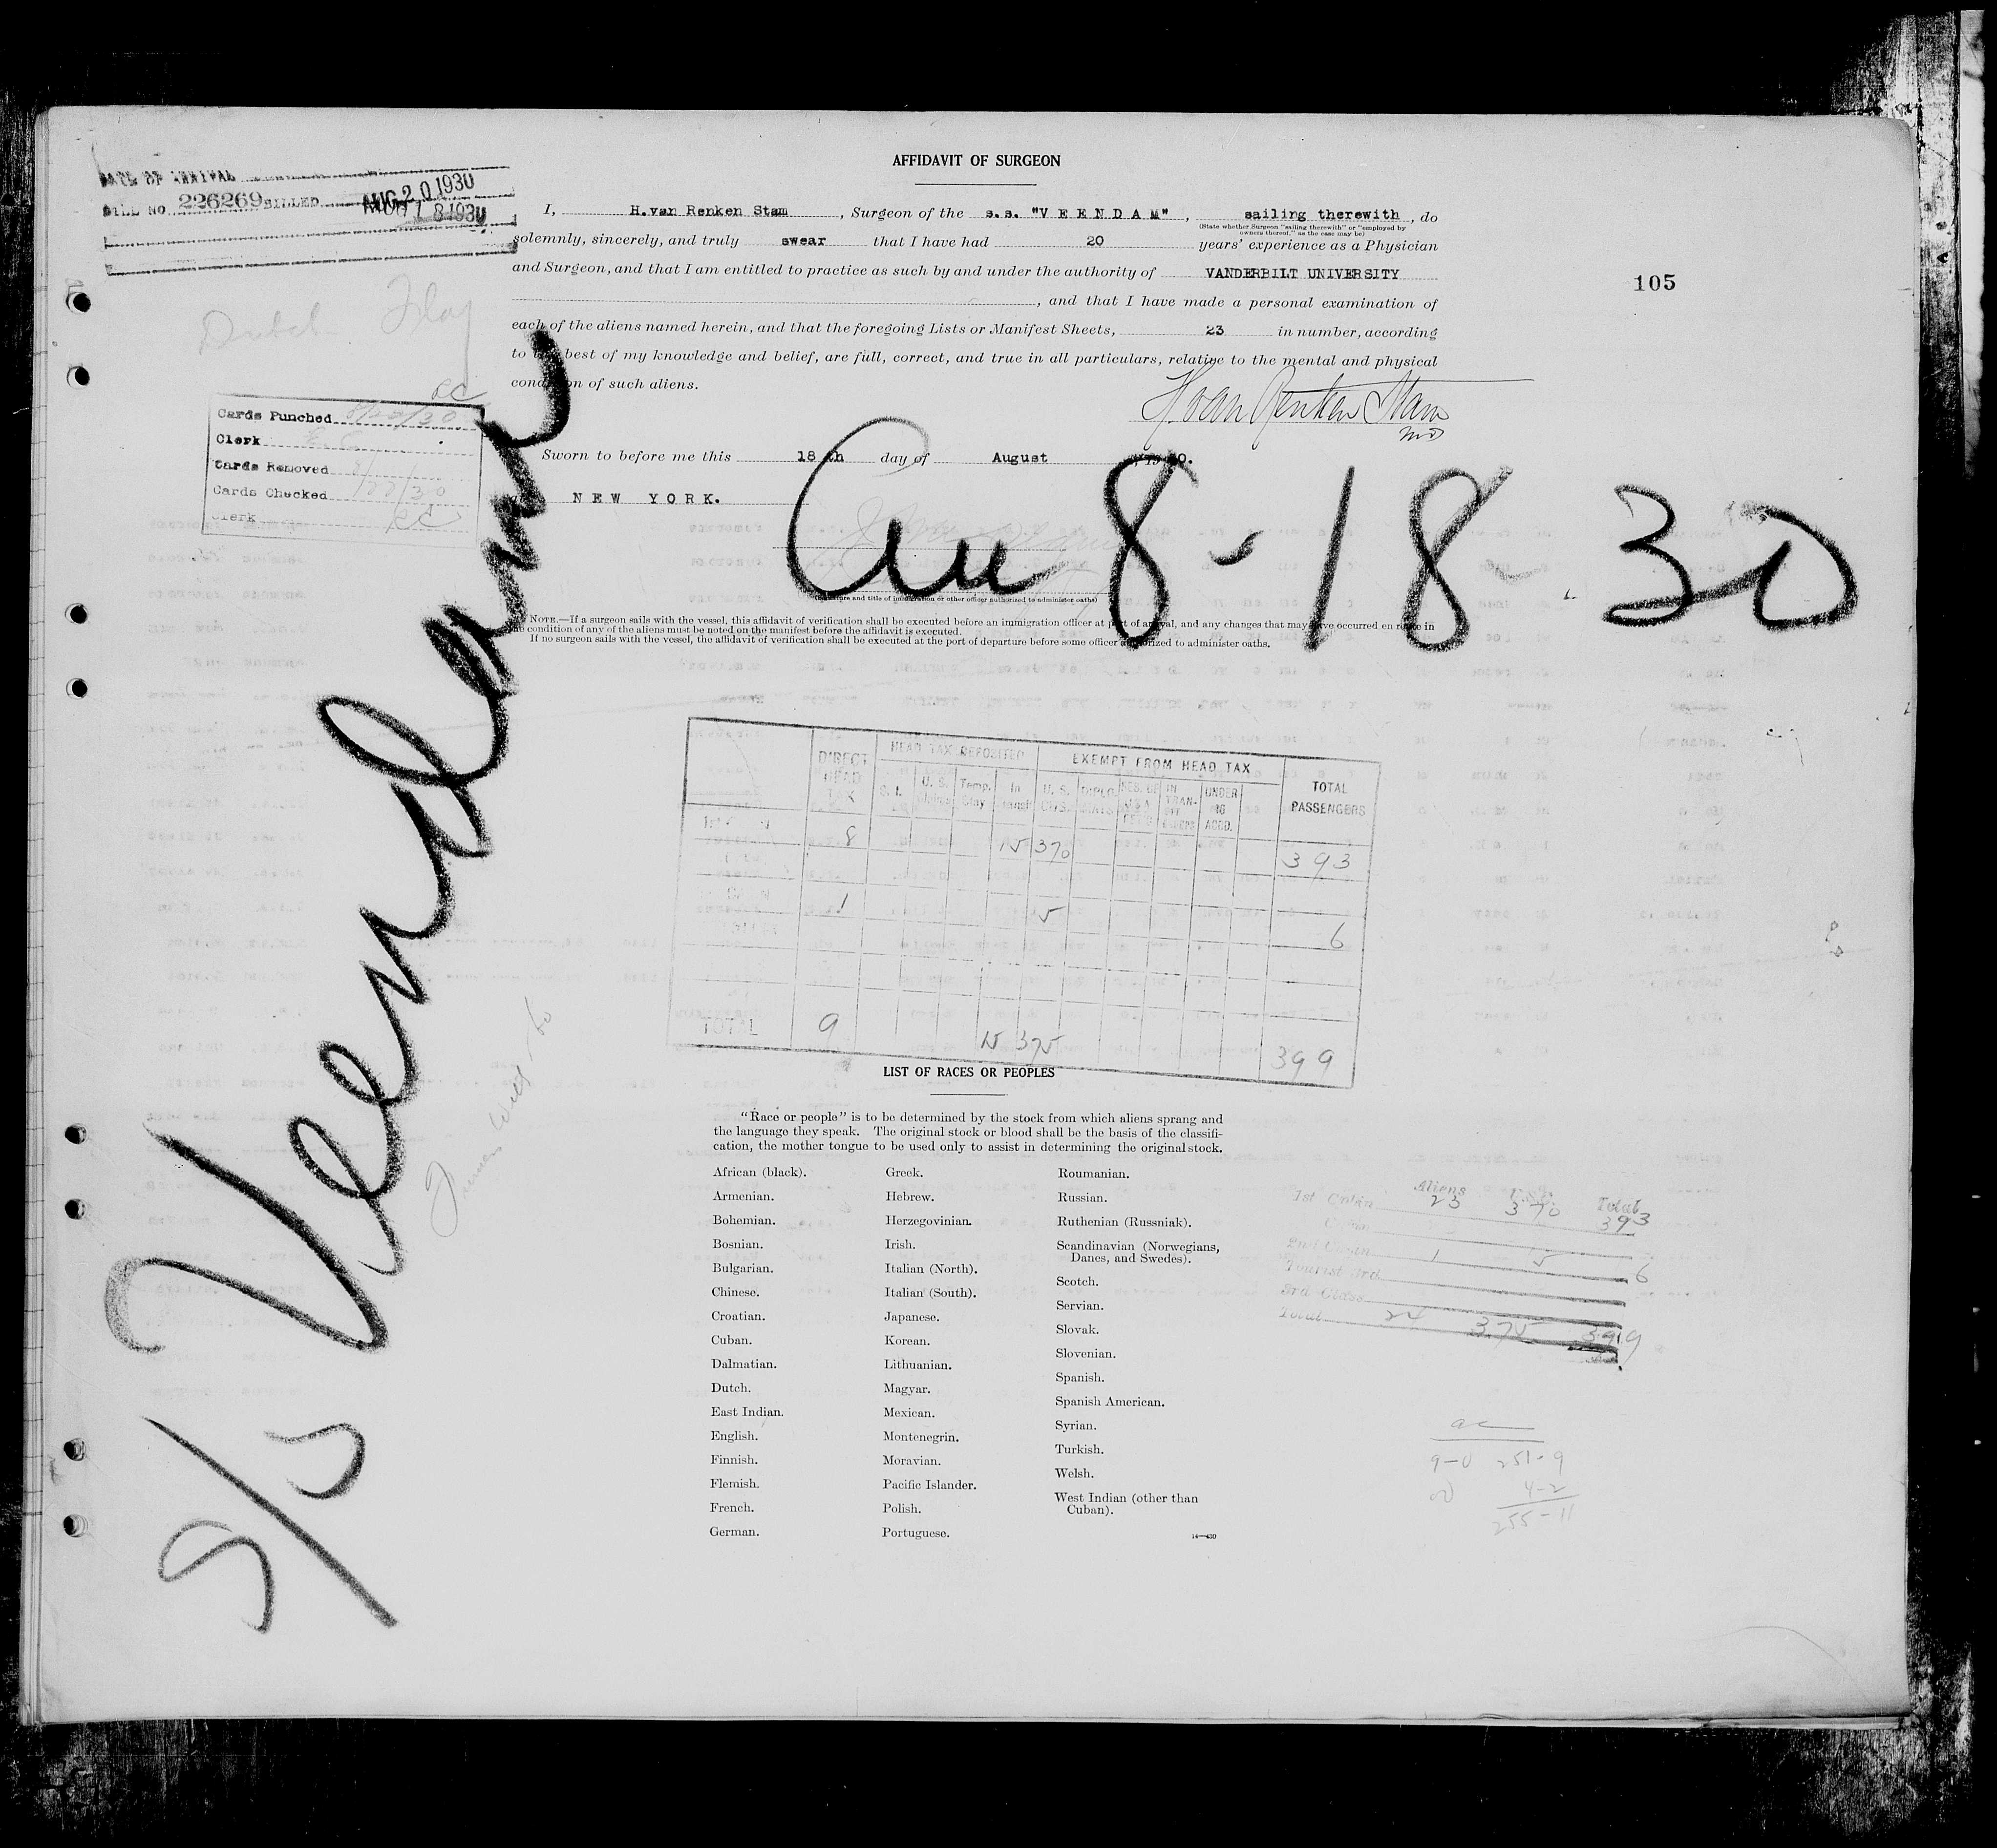 AFFIDAVIT OF SURGEON
DATE OF ARRIVAL
BILL No. 226269 BILLED AUG 20 1930
18 1930
I, H.van Renken Stam, Surgeon of the s.s. "V E E N D A M", sailing therewith, do
(State whether Surgeon "sailing therewith" or "employed by
owners thereof," as the case may be)
solemnly, sincerely, and truly swear that I have had 20 years' experience as a Physician
and Surgeon, and that I am entitled to practice as such by and under the authority of VANDERBILT UNIVERSITY
, and that I have made a personal examination of
105
each of the aliens named herein, and that the foregoing Lists or Manifest Sheets, 23 in number, according
to the best of my knowledge and belief, are full, correct, and true in all particulars, relative to the mental and physical
condition of such aliens.
H. van Renken Stam
MD
Dutch Flag
Cards Punched 8/22/30
Clerk
Cards Removed
Cards Checked /22/30
Clerk
Sworn to before me this 18 th day of August, 1930.
NEW YORK.
8-18-30
(Signature and title of immigration or other officer authorized to administer oaths)
NOTE.—If a surgeon sails with the vessel, this affidavit of verification shall be executed before an immigration officer at port of arrival, and any changes that may have occurred en route in
the condition of any of the aliens must be noted on the manifest before the affidavit is executed.
If no surgeon sails with the vessel, the affidavit of verification shall be executed at the port of departure before some officer authorized to administer oaths.
S/S Veendam
DIRECT HEAD TAX
HEAD TAX DEPOSITED
EXEMPT FROM HEAD TAX
TOTAL PASSENGERS
S. I.
U. S.
Temp. Stay
In Transit
U. S. CITS.
DIPLO MATS
IN TRANSIT
UNDER 16 ACCD.
8 15 370 393
1 5 6
TOTAL 9 15 375 399
LIST OF RACES OR PEOPLES
"Race or people" is to be determined by the stock from which aliens sprang and
the language they speak. The original stock or blood shall be the basis of the classifi-
cation, the mother tongue to be used only to assist in determining the original stock.
African (black).
Armenian.
Bohemian.
Bosnian.
Bulgarian.
Chinese.
Croatian.
Cuban.
Dalmatian.
Dutch.
East Indian.
English.
Finnish.
Flemish.
French.
German.
Greek.
Hebrew.
Herzegovinian.
Irish.
Italian (North).
Italian (South).
Japanese.
Korean.
Lithuanian.
Magyar.
Mexican.
Montenegrin.
Moravian.
Pacific Islander.
Polish.
Portuguese.
Roumanian.
Russian.
Ruthenian (Russniak).
Scandinavian (Norwegians,
Danes, and Swedes).
Scotch.
Servian.
Slovak.
Slovenian.
Spanish.
Spanish American.
Syrian.
Turkish.
Welsh.
West Indian (other than
Cuban).
14—430
Aliens U.S.C. Total
1st Cabin 23 370 393
Cabin
2nd Cabin 1 5 6
Tourist 3rd
3rd Class
Total 24 375 399
9-0 251-9
4-2
255-11